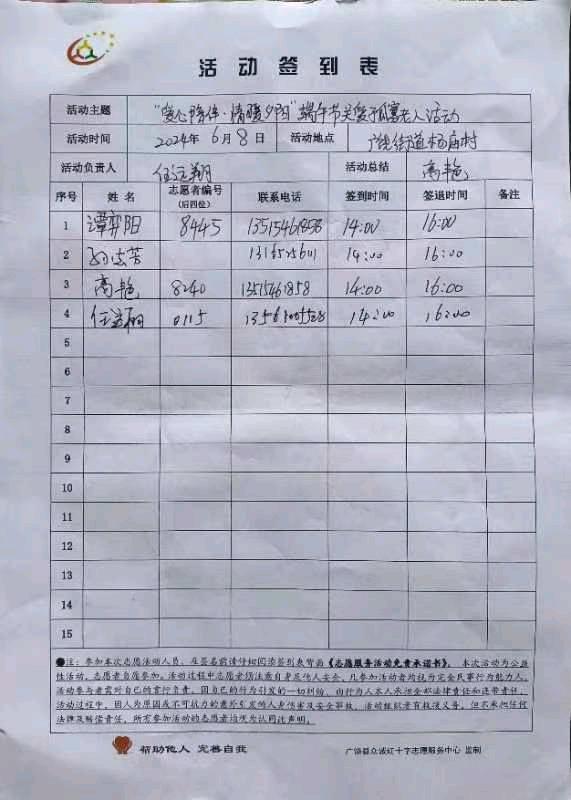 活动签到表
活动主题 "爱心陪伴·情暖夕阳"端午节关爱孤寡老人活动
活动时间 2024年6月8日 活动地点 广饶街道杨庙村
活动负责人 任益翔 活动总结 高艳
序号 姓名 志愿者编号(后四位) 联系电话 签到时间 签退时间 备注
1 谭弈阳 8445 13515461858 14:00 16:00
2 14:00 16:00
3 高艳 8240 13515461858 14:00 16:00
4 任益翔 0115 14:00 16:00
5
6
7
8
9
10
11
12
13
14
15
●注:参加本次志愿活动人员,在签名前请仔细阅读签到表背面《志愿服务活动免责承诺书》。本次活动为公益
性活动,志愿者自愿参加。活动过程中志愿者须注意自身及他人安全,凡参加活动者均视为完全民事行为能力人,
活动参与者需对自己的言行负责,因自己的行为引发的一切纠纷,由行为人本人承担全部法律责任和连带责任。
活动过程中,因人为原因或不可抗力的意外引发的人身伤害及安全事故,活动组织者有救援义务,但不承担任何
法律及赔偿责任,所有参加活动的志愿者均视为认同此声明。
帮助他人 完善自我 广饶县众诚红十字志愿服务中心 监制